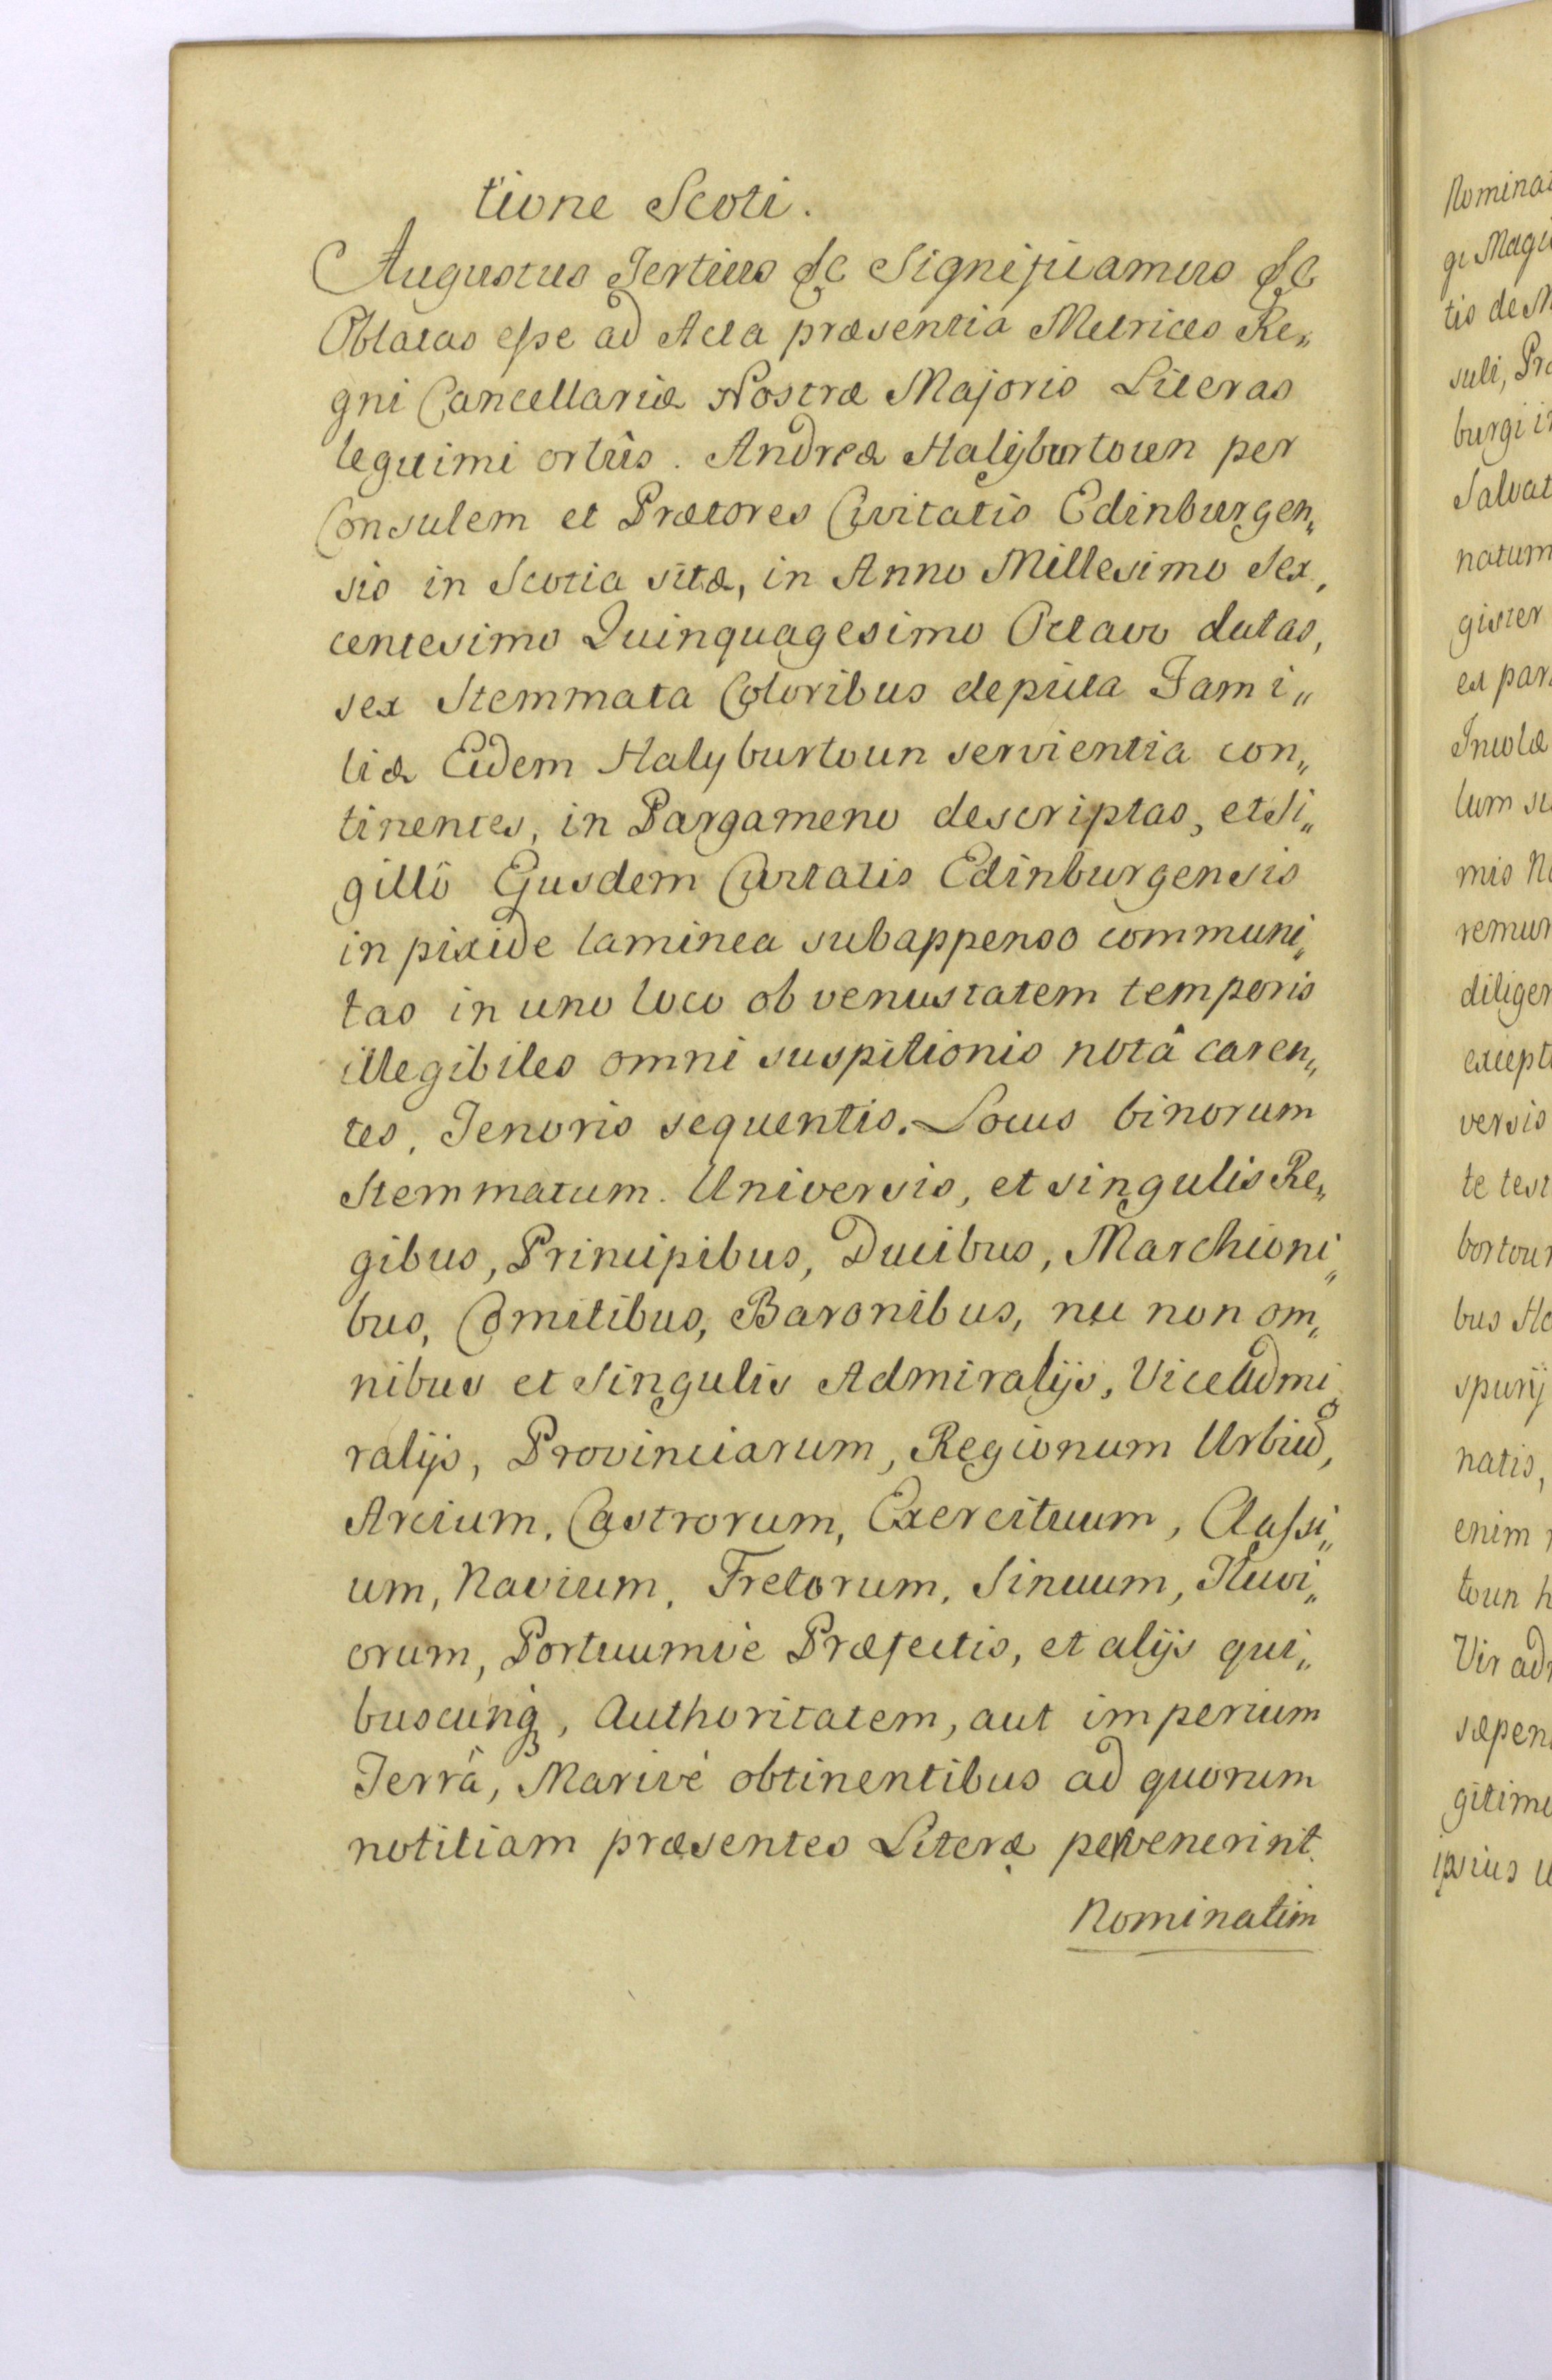 tione Scoti.
Augustus Tertius &c Significamus &c
Oblatas esse ad Acta præsentia Metrices Re„
gni Cancellariæ Nostræ Majoris Literas
leguimi ortûs. Andreæ Halyburtoun per
Consulem et Prætores Civitatis Edinburgen„
sis in Scotia sitæ, in Anno Millesimo Sex„
centesimo Quinquagesimo Octavo datas,
sex Stemmata Coloribus depicta Fami„
liæ Eidem Halyburtoun servientia con„
tinentes, in Pargameno descriptas, et Si„
gillô Ejusdem Civitatis Edinburgensis
in pixide laminea subappenso communi„
tas in uno loco ob venustatem temporis
illegibiles omni suspitionis notâ caren„
tes, Tenoris sequentis. Locus binorum
Stemmatum. Universis, et singulis Re„
gibus, Principibus, Ducibus, Marchioni„
bus, Comitibus, Baronibus, nec non om„
nibus et Singulis Admiralijs, Viceadmi„
ralijs, Provinciarum, Regionum Urbiũ,
Arcium, Castrorum, Exercituum, Classi„
um, Navium, Fretorum, Sinuum, Fluvi„
orum, Portuumve Præfectis, et alijs qui„
buscunq, Authoritatem, aut imperium
Terrâ, Marivè obtinentibus ad quorum
notitiam præsentes Literæ pervenerint.
Nominatim
Nominat
gi Magi
tis de M
suli, Præ
burgi in
Salvat
natum
gister
ex par
Incolæ
lum su
mis No
remur
diligen
except
versis
te test
bortoun
bus Ha
spurij
natis,
enim
toun h
Vir ad
sæpen
gitimo
ipsius